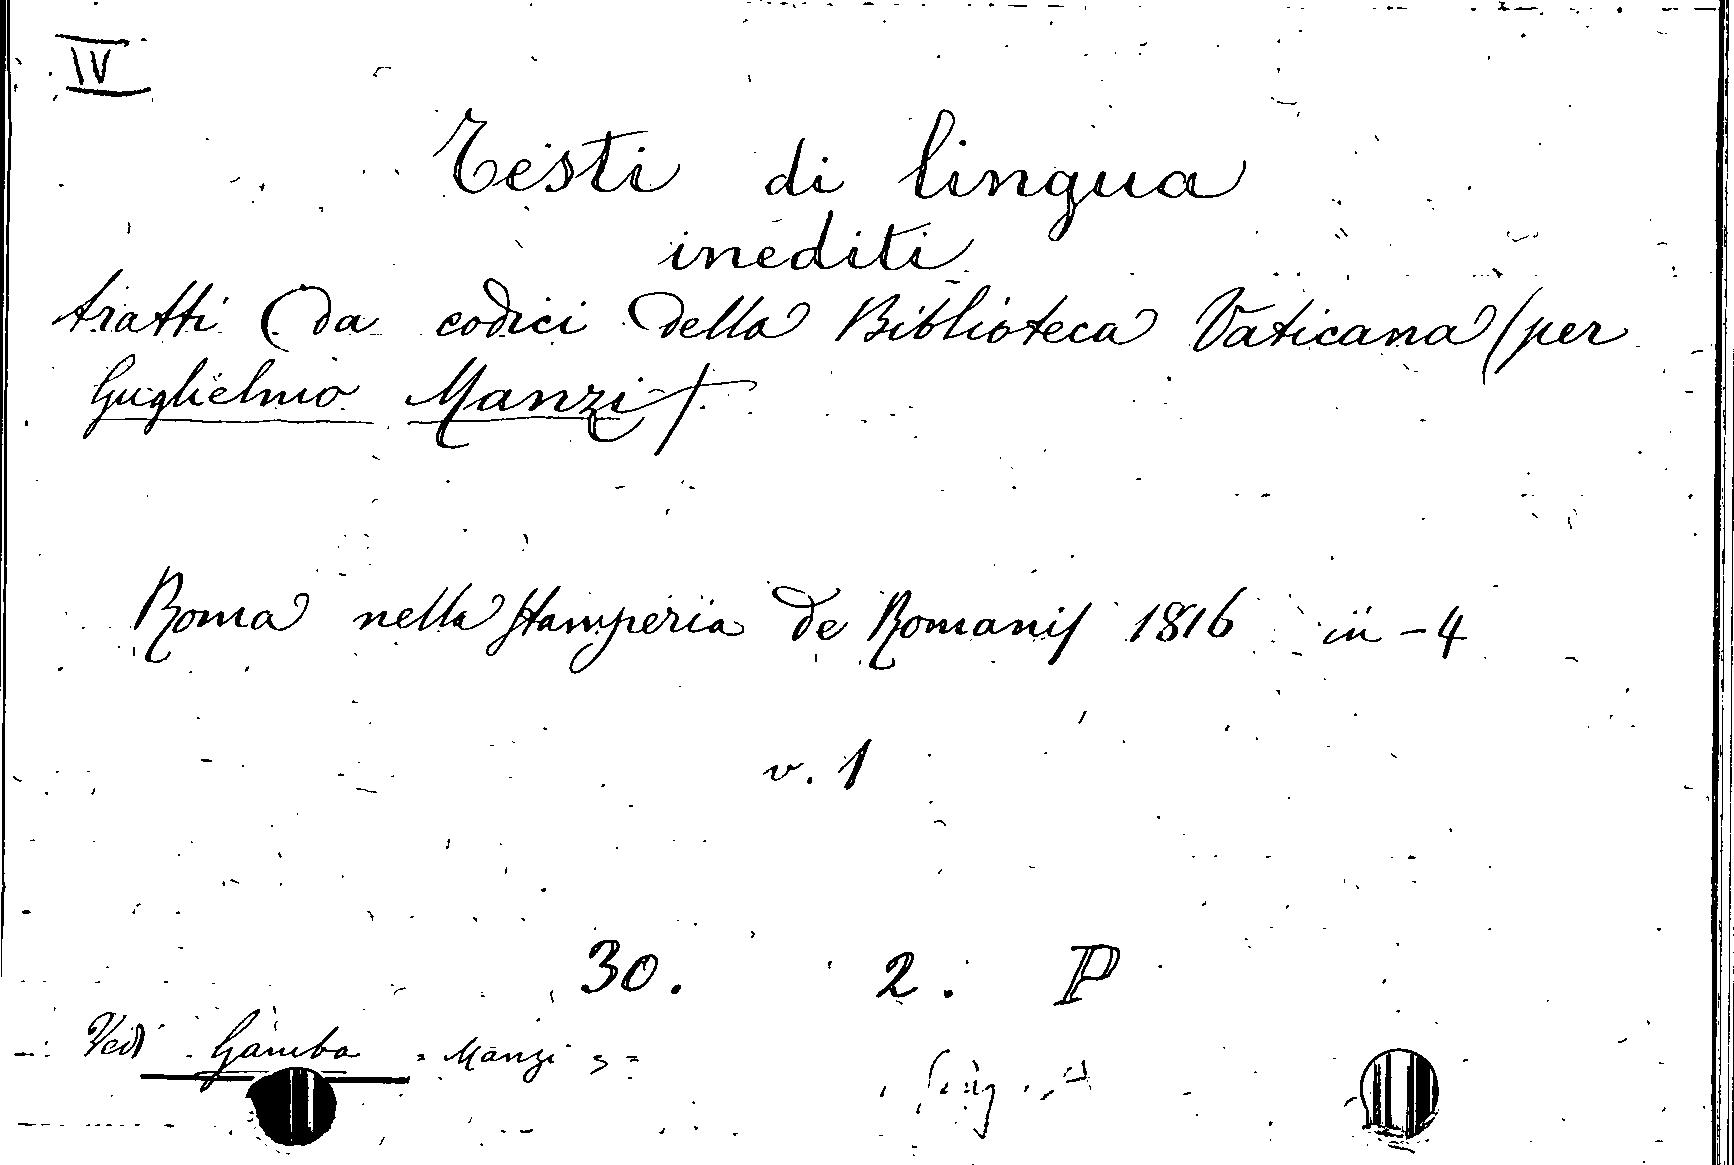 IV
Testi di lingua
inediti
tratti (da codici della Biblioteca Vaticana (per
Guglielmo Manzi).
Roma nella Stamperia de Romanis 1816 in-4
v. 1
30. 2. P
Vedi Gamba = Manzi =